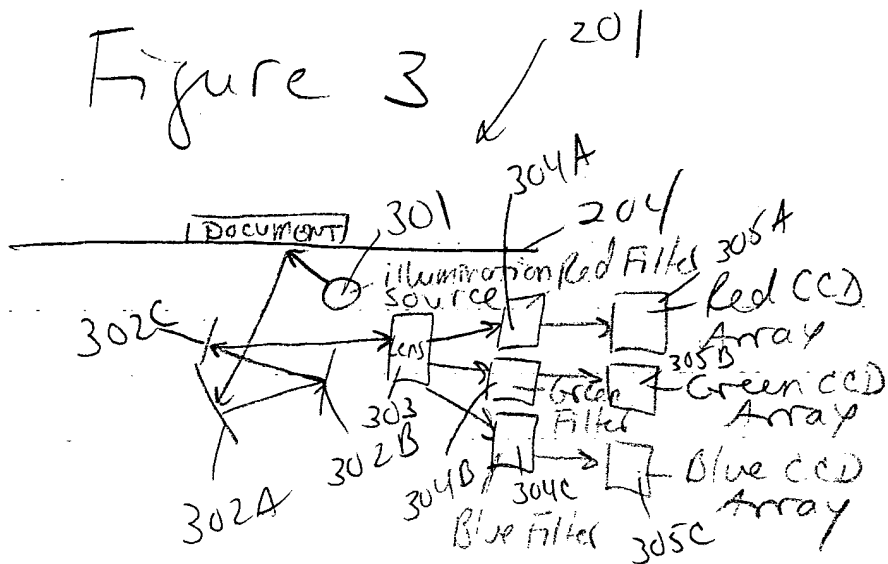 Figure 3
201
304A
DOCUMENT
301
204
305A
illumination source
Red Filter
Red CCD Array
302C
Lens
303
305B
Green Filter
Green CCD Array
302B
304B
304C
302A
Blue Filter
305C
Blue CCD Array